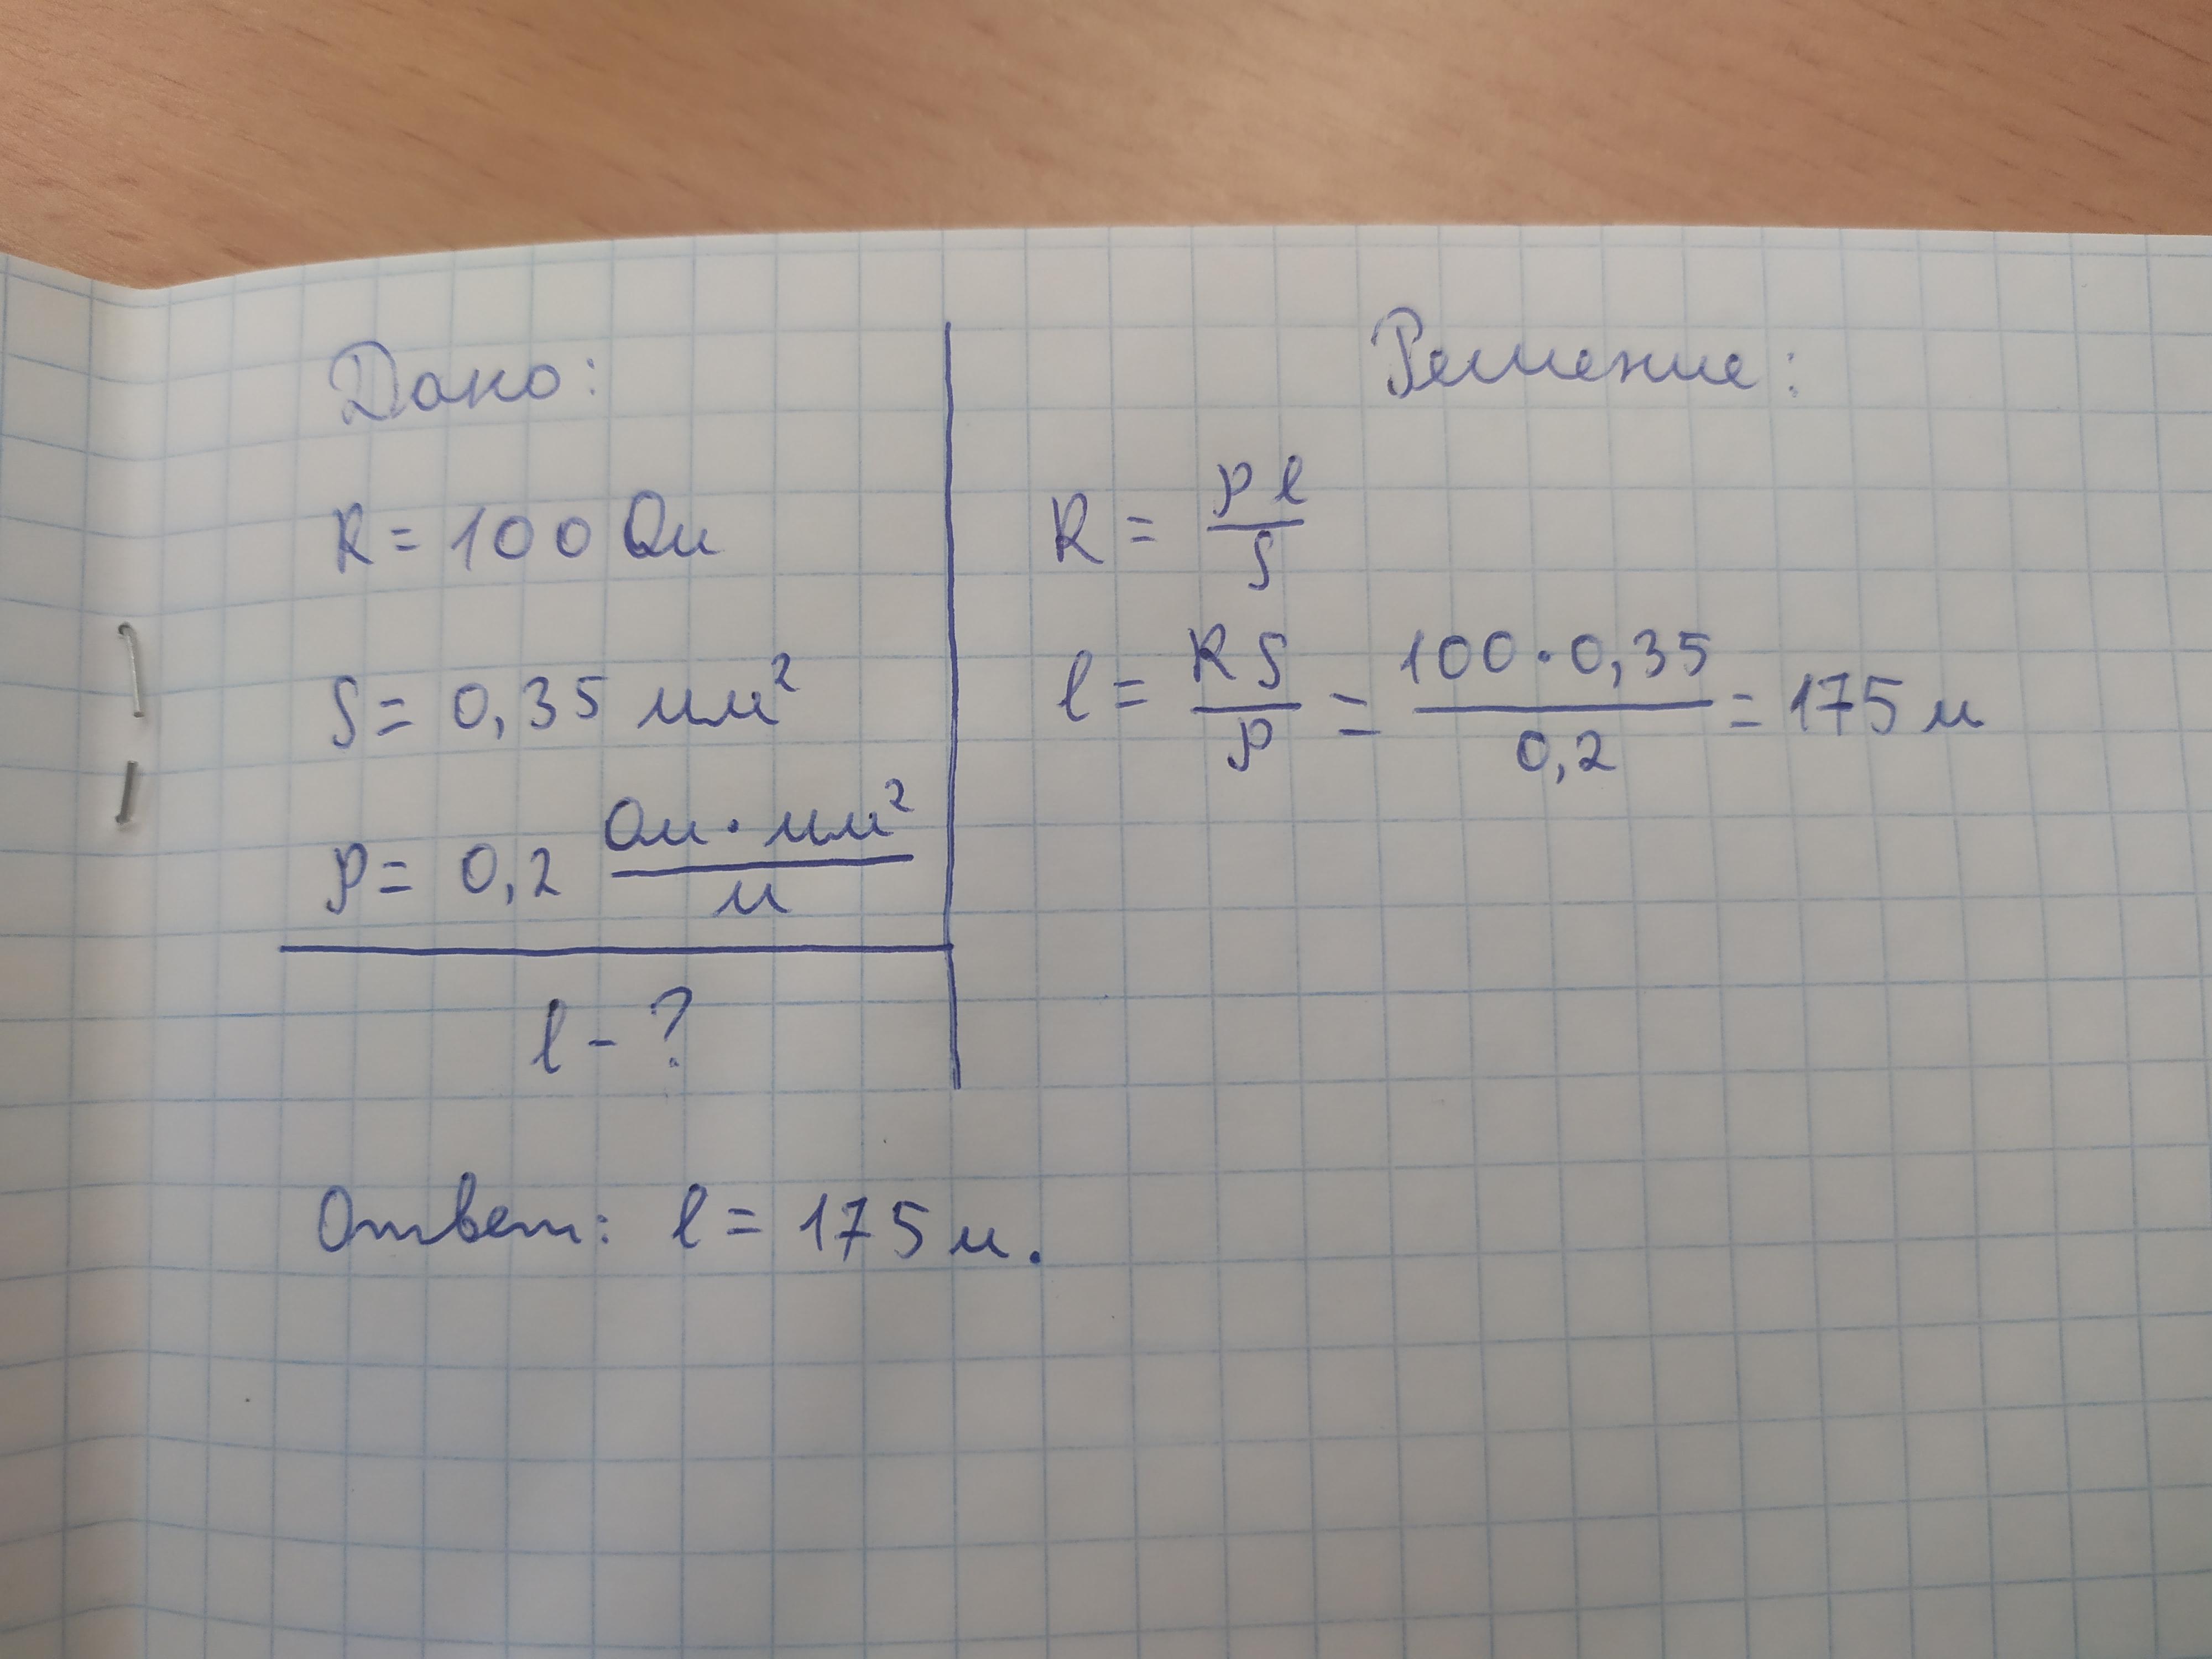 Дано:
R = 100 Ом
S = 0,35 мм²
ρ = 0,2 Ом · мм² / м
l - ?
Решение:
R = ρl / S
l = RS / ρ = 100 · 0,35 / 0,2 = 175 м
Ответ: l = 175 м.